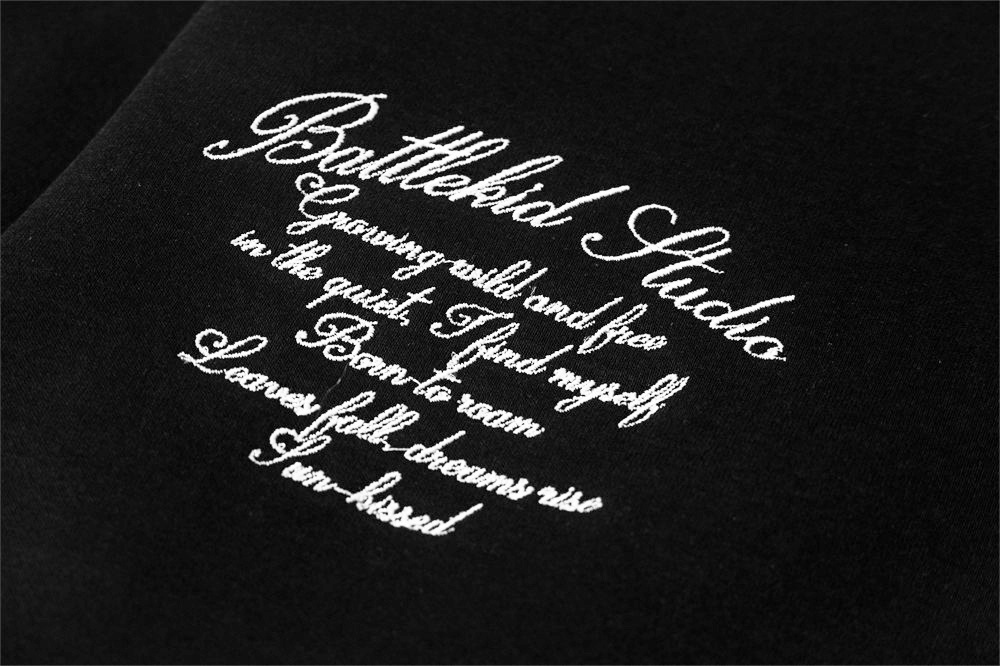 Battlekid Studio
Growing wild and free
in the quiet, I find myself
Born to roam
Leaves fall, dreams rise
Sun-kissed